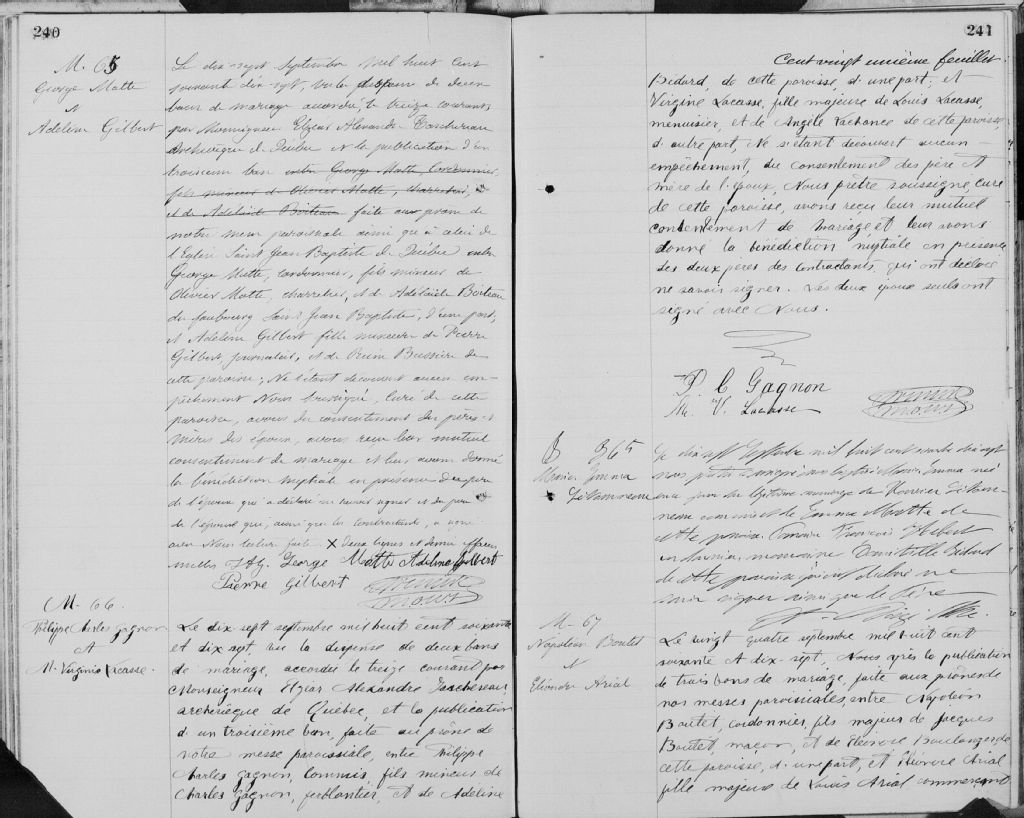 240
M. 65
George Matte
et
Adeline Gilbert
Le dix-sept septembre mil huit cent
soixante dix-sept, vu la dispense de deux
bans de mariage accordée le treize courant
par Monseigneur Elzéar Alexandre Taschereau
Archevêque de Québec et la publication d'un
troisième ban entre George Matte Cordonnier,
fils mineur d'Olivier Matte, charretier,
et de Adelaide Boiteau faite au prône de
notre messe paroissiale ainsi que à celui de
l'Eglise Saint Jean Baptiste de Québec entre
George Matte, cordonnier, fils mineur de
Olivier Matte, charretier, et de Adelaïde Boiteau
du faubourg Saint Jean Baptiste, d'une part,
et Adeline Gilbert fille mineure de Pierre
Gilbert, journalier, et de Reine Bussière de
cette paroisse; Ne s'étant découvert aucun em-
pêchement Nous soussigné, Curé de cette
paroisse, avons du consentement des pères et
mères des époux, avons reçu leur mutuel
consentement de mariage et leur avons donné
la bénédiction nuptiale en présence du père
de l'époux qui a déclaré ne savoir signer et du père
de l'épouse qui, ainsi que les contractants, a signé
avec Nous lecture faite X deux lignes et demie
nulles George Matte Adeline Gilbert
Pierre Gilbert
M. 66.
Philippe Charles Gagnon
et
M. Virginie Lacasse.
Le dix sept septembre mil huit cent soixante
et dix sept, vu la dispense de deux bans
de mariage, accordée le treize courant par
Monseigneur Elzéar Alexandre Taschereau,
archevêque de Québec, et la publication
d'un troisième ban, faite au prône de
notre messe paroissiale, entre Philippe
Charles Gagnon, Commis, fils mineur de
Charles Gagnon, ferblantier, et de Adeline
241
Cent vingt unième feuillet
Bédard, de cette paroisse, d'une part; et
Virginie Lacasse, fille majeure de Louis Lacasse,
menuisier, et de Angèle Lachance de cette paroisse,
d'autre part, Ne s'étant découvert aucun
empêchement, du consentement des père et
mère de l'époux, Nous prêtre soussigné, curé
de cette paroisse, avons reçu leur mutuel
consentement de mariage et leur avons
donné la bénédiction nuptiale en présence
des deux pères des contractants, qui ont déclaré
ne savoir signer. Les deux époux seuls ont
signé avec Nous.
P. C. Gagnon
M. V. Lacasse
B 365
Marie Emma
Letourneau
Le dix sept septembre mil huit cent soixante dix sept
nous prêtre soussigné avons baptisé Marie Emma né
du légitime mariage de
de Emma Matte de
cette paroisse. Parrain François Hébert
marraine Bédard
de cette paroisse qui ont déclaré ne
savoir signer ainsi que le Père
M. 67
Napoléon Boutet
et
Eléonore Arial
Le vingt quatre septembre mil huit cent
soixante et dix-sept, Nous après la publication
de trois bans de mariage, faite aux prônes de
nos messes paroissiales, entre Napoléon
Boutet, cordonnier, fils majeur de Jacques
Boutet, maçon, et de Eléonore Boulanger, de
cette paroisse, d'une part, et Eléonore Arial
fille majeure de Louis Arial commerçant